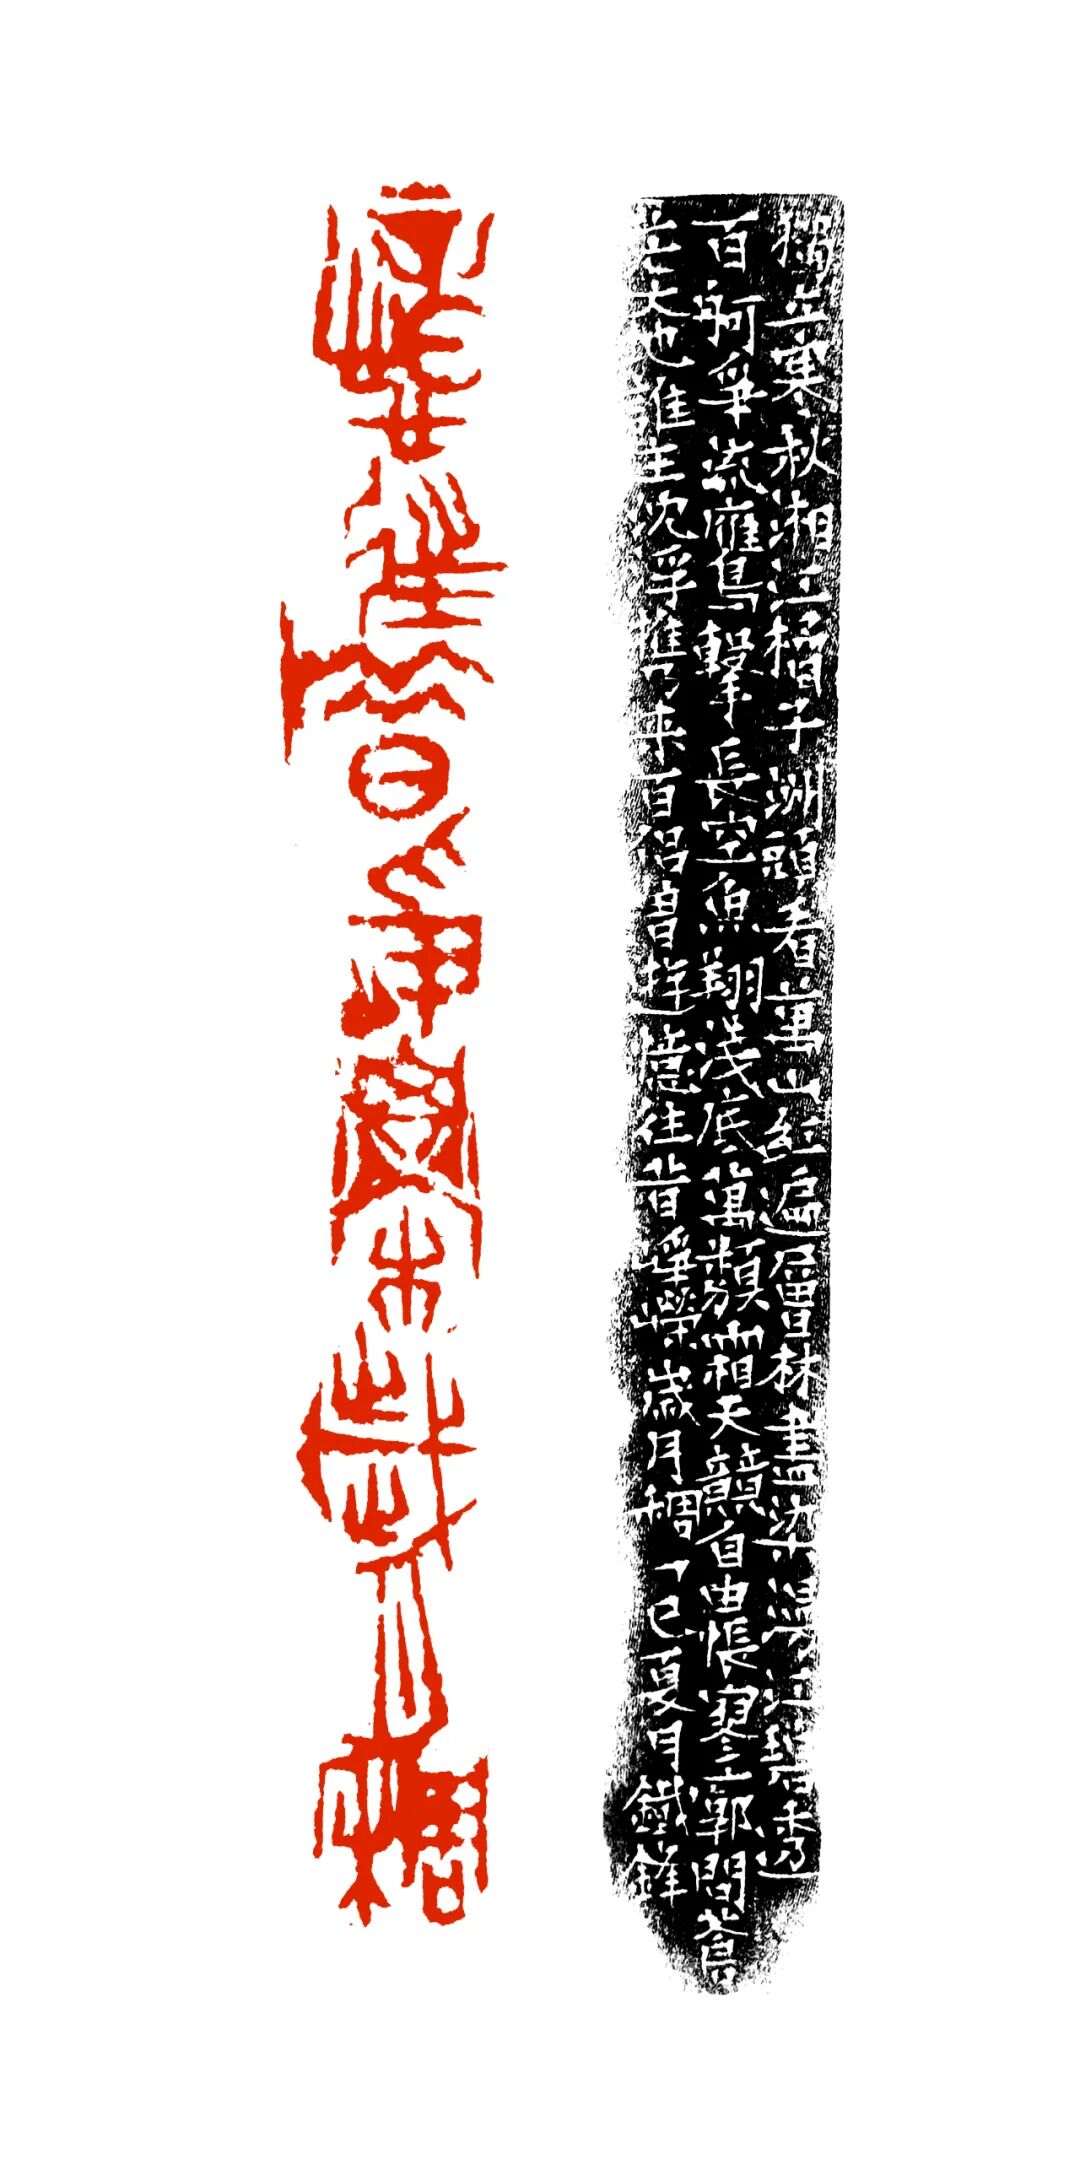 獨立寒秋湘江橘子洲頭看萬山紅遍層林盡染漫江碧透
百舸爭流鷹擊長空魚翔淺底萬類霜天競自由悵寥廓問蒼
茫大地誰主沈浮攜来百侣曾遊憶往昔崢嶸歲月稠乙巳夏月鐵鋒
憶往昔崢嶸歲月稠